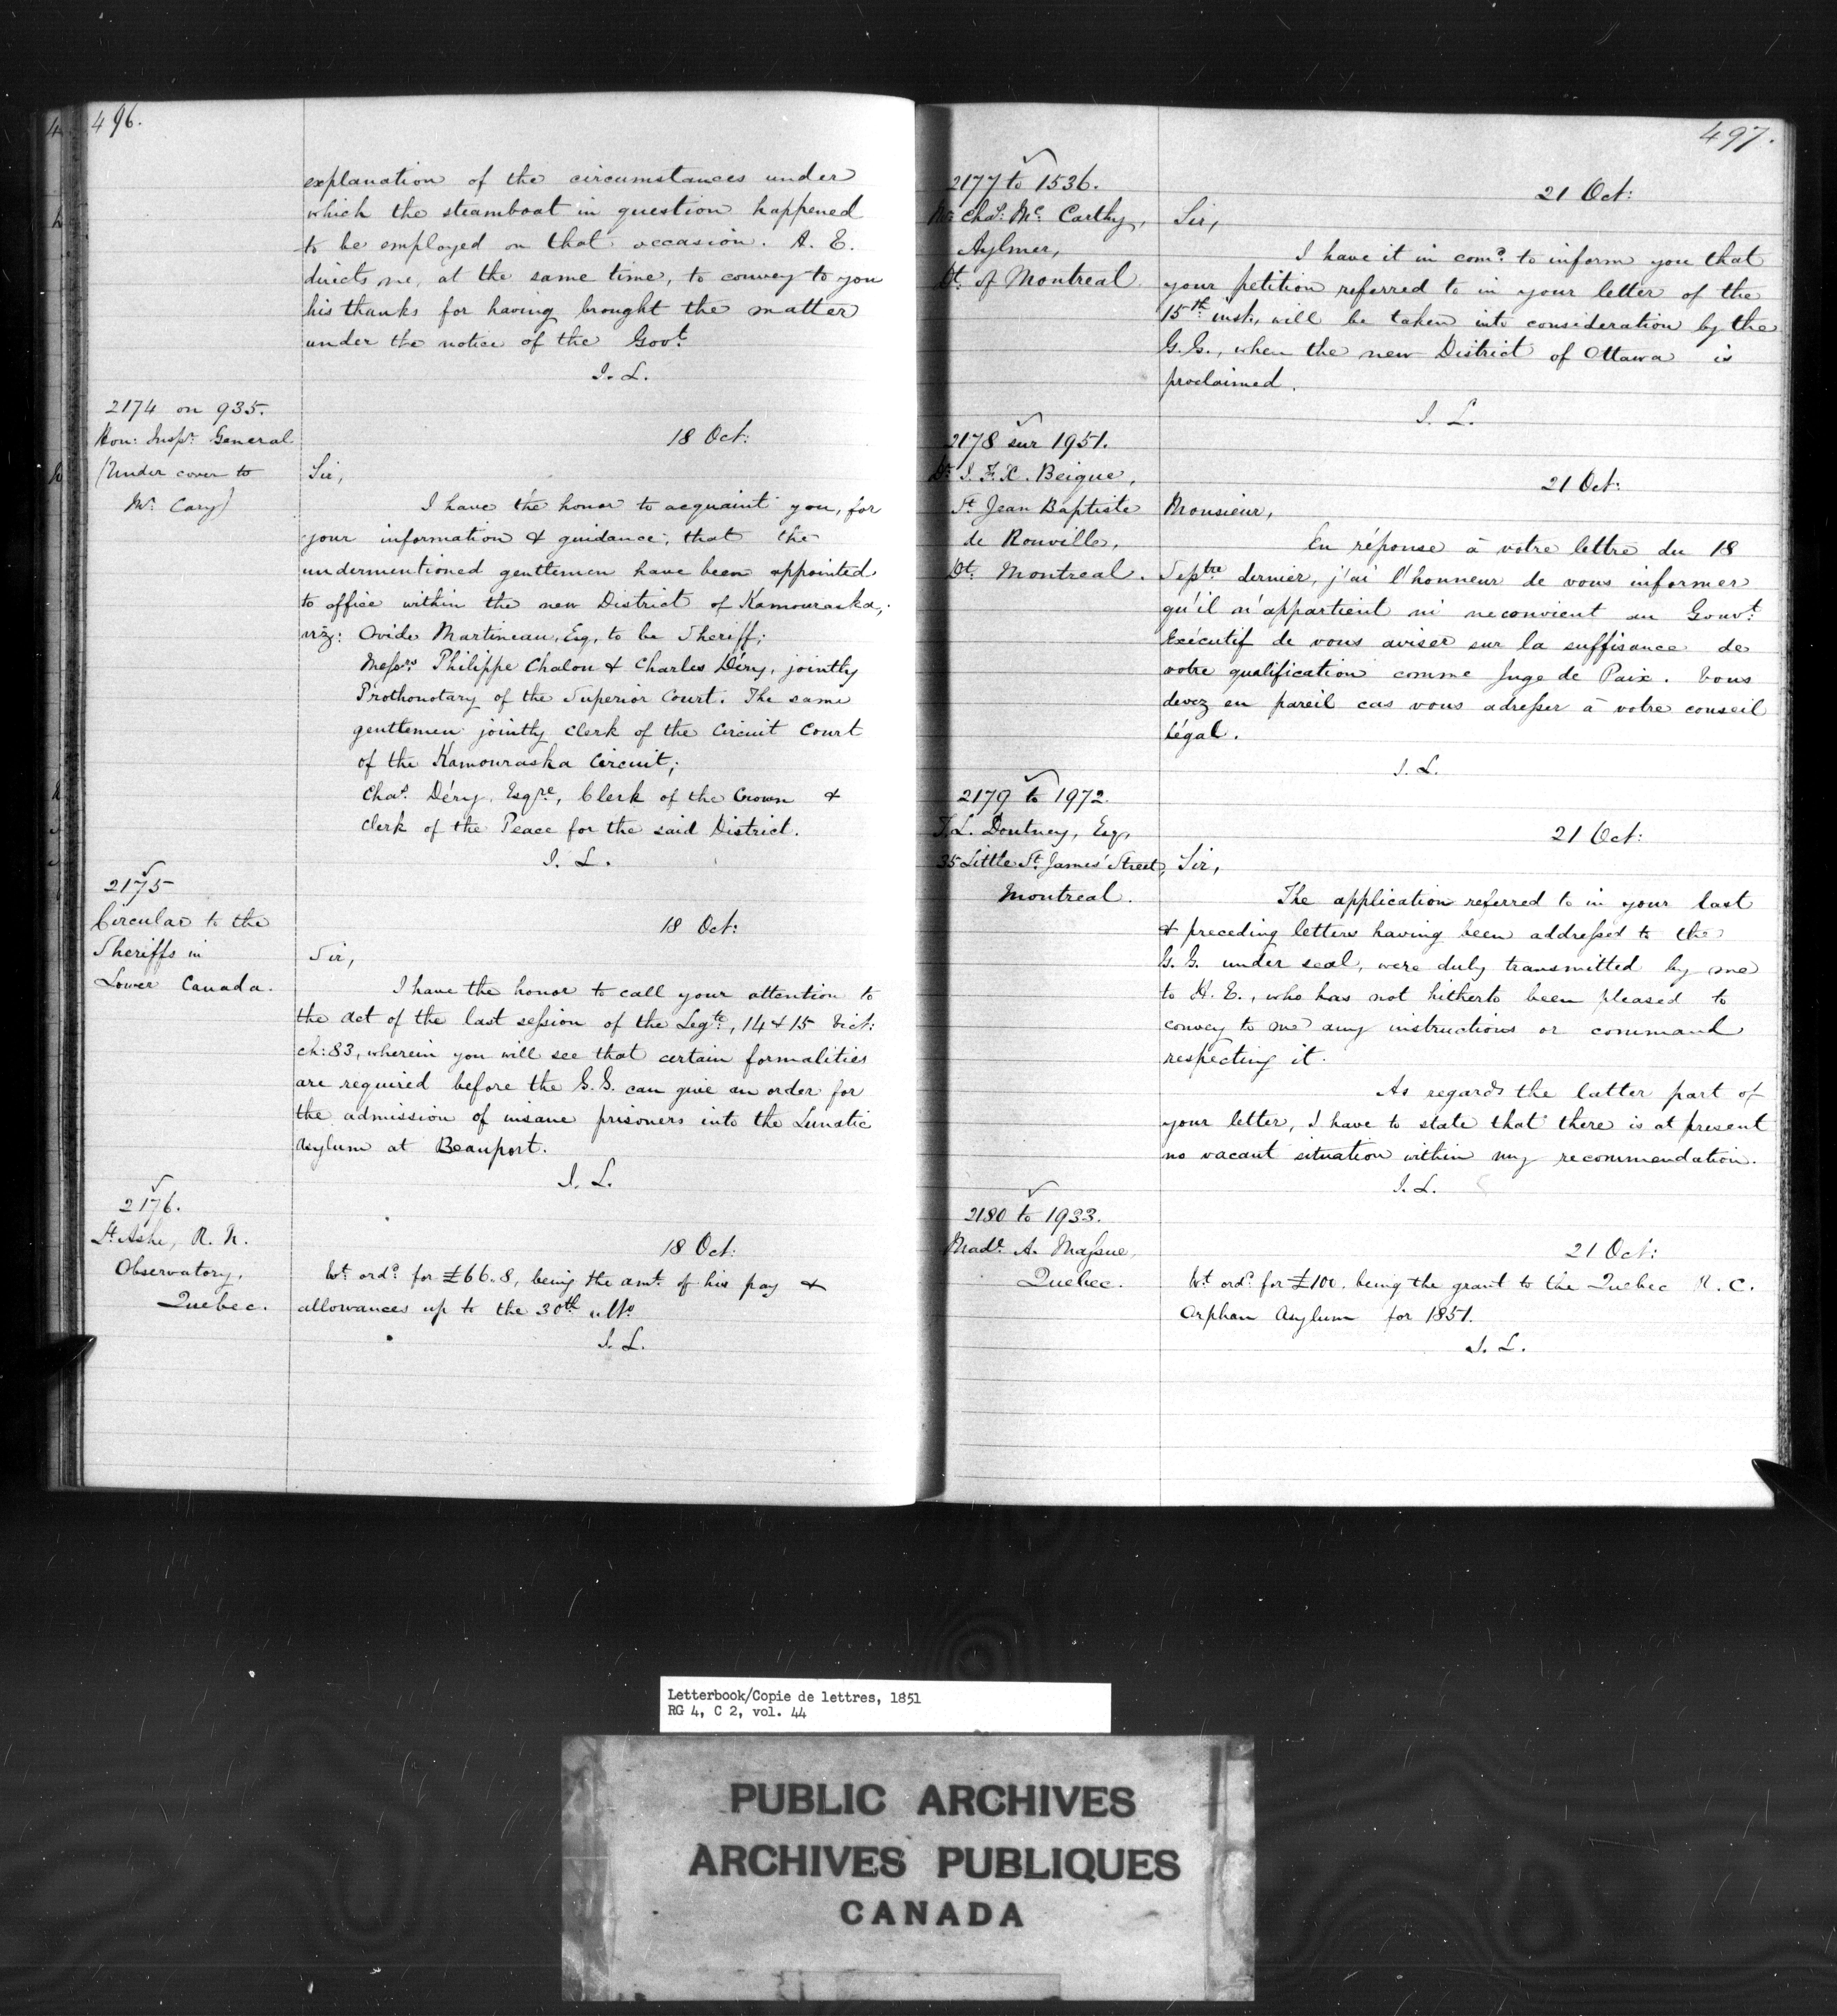 496.
explanation of the circumstances under
which the steamboat in question happened
to be employed on that occasion. H. E.
directs me, at the same time, to convey to you
his thanks for having brought the matter
under the notice of the Govt.
J. L.
2174 on 935.
Hon: Inspr. General
(Under cover to
Mr. Cary)
18 Oct:
Sir,
I have the honor to acquaint you, for
your information & guidance, that the
undermentioned gentlemen have been appointed
to office within the new District of Kamouraska,
viz: Ovide Martineau, Esq, to be Sheriff;
Messrs Philippe Chalou & Charles Déry, jointly
Prothonotary of the Superior Court. The same
gentlemen jointly Clerk of the Circuit Court
of the Kamouraska Circuit;
Chas. Déry, Esqre, Clerk of the Crown &
Clerk of the Peace for the said District.
J. L.
2175
Circular to the
Sheriffs in
Lower Canada.
18 Oct:
Sir,
I have the honor to call your attention to
the Act of the last session of the Legte, 14 & 15 Vict:
ch: 83, wherein you will see that certain formalities
are required before the G. G. can give an order for
the admission of insane prisoners into the Lunatic
Asylum at Beauport.
J. L.
2176.
Lt. Ashe, R. N.
Observatory,
Quebec.
18 Oct:
Wt. ordd. for £66.8, being the amt. of his pay &
allowances up to the 30th ulto
J. L.
497.
2177 to 1536.
Mr Chas. Mc. Carthy,
Aylmer,
Dt. of Montreal
21 Oct:
Sir,
I have it in comd. to inform you that
your petition referred to in your letter of the
15th. inst., will be taken into consideration by the
G. G., when the new District of Ottawa is
proclaimed.
J. L.
2178 sur 1951.
Dr. J. F. X. Beique,
St. Jean Baptiste
de Rouville,
Dt. Montreal.
21 Oct:
Monsieur,
En réponse à votre lettre du 18
Septbre dernier, j'ai l'honneur de vous informer
qu'il n'appartient ni ne convient au Gouvt.
Exécutif de vous aviser sur la suffisance de
votre qualification comme Juge de Paix. Vous
devez en pareil cas vous adresser à votre conseil
légal.
J. L.
2179 to 1972.
T. L. Doutney, Esq,
35 Little St. James' Street,
Montreal.
21 Oct:
Sir,
The application referred to in your last
& preceding letters having been addressed to the
G. G. under seal, were duly transmitted by me
to H. E., who has not hitherto been pleased to
convey to me any instructions or command
respecting it.
As regards the latter part of
your letter, I have to state that there is at present
no vacant situation within my recommendation.
J. L.
2180 to 1933.
Made. A. Massue,
Quebec.
21 Oct:
Wt. ordd. for £100, being the grant to the Quebec R. C.
Orphan Asylum for 1851.
J. L.
Letterbook/Copie de lettres, 1851
RG 4, C 2, vol. 44
PUBLIC ARCHIVES
ARCHIVES PUBLIQUES
CANADA